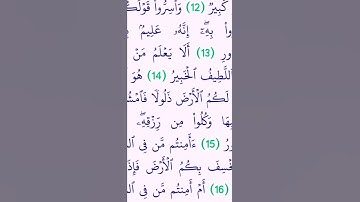 كَبِيرٌ (12) وَأَسِرُّوا۟ قَوْلَكُ
وا۟ بِهِۦٓ ۖ إِنَّهُۥ عَلِيمٌۢ بِ
ورِ (13) أَلَا يَعْلَمُ مَنْ
للَّطِيفُ ٱلْخَبِيرُ (14) هُوَ
لَكُمُ ٱلْأَرْضَ ذَلُولًا فَٱمْشُ
بِهَا وَكُلُوا۟ مِن رِّزْقِهِۦ ۖ
ورُ (15) ءَأَمِنتُم مَّن فِى ٱلسَّ
خْسِفَ بِكُمُ ٱلْأَرْضَ فَإِذَ
(16) أَمْ أَمِنتُم مَّن فِى ٱلسَّ